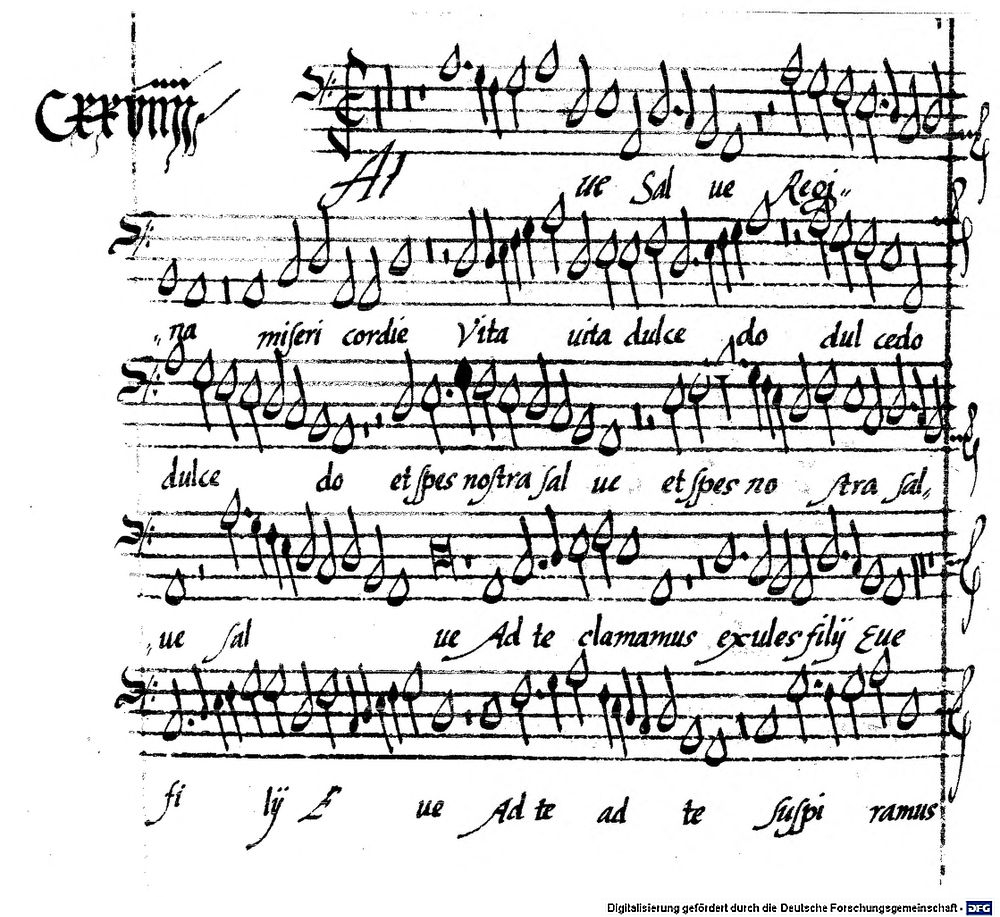 Cxxviiij
Al ue Sal ue Regi„
„na miseri cordie Vita uita dulce do dul cedo
dulce do et spes nostra sal ue et spes no stra sal„
„ue sal ue Ad te clamamus exules filij Eue
fi lij E ue Ad te ad te suspi ramus
Digitalisierung gefördert durch die Deutsche Forschungsgemeinschaft - DFG